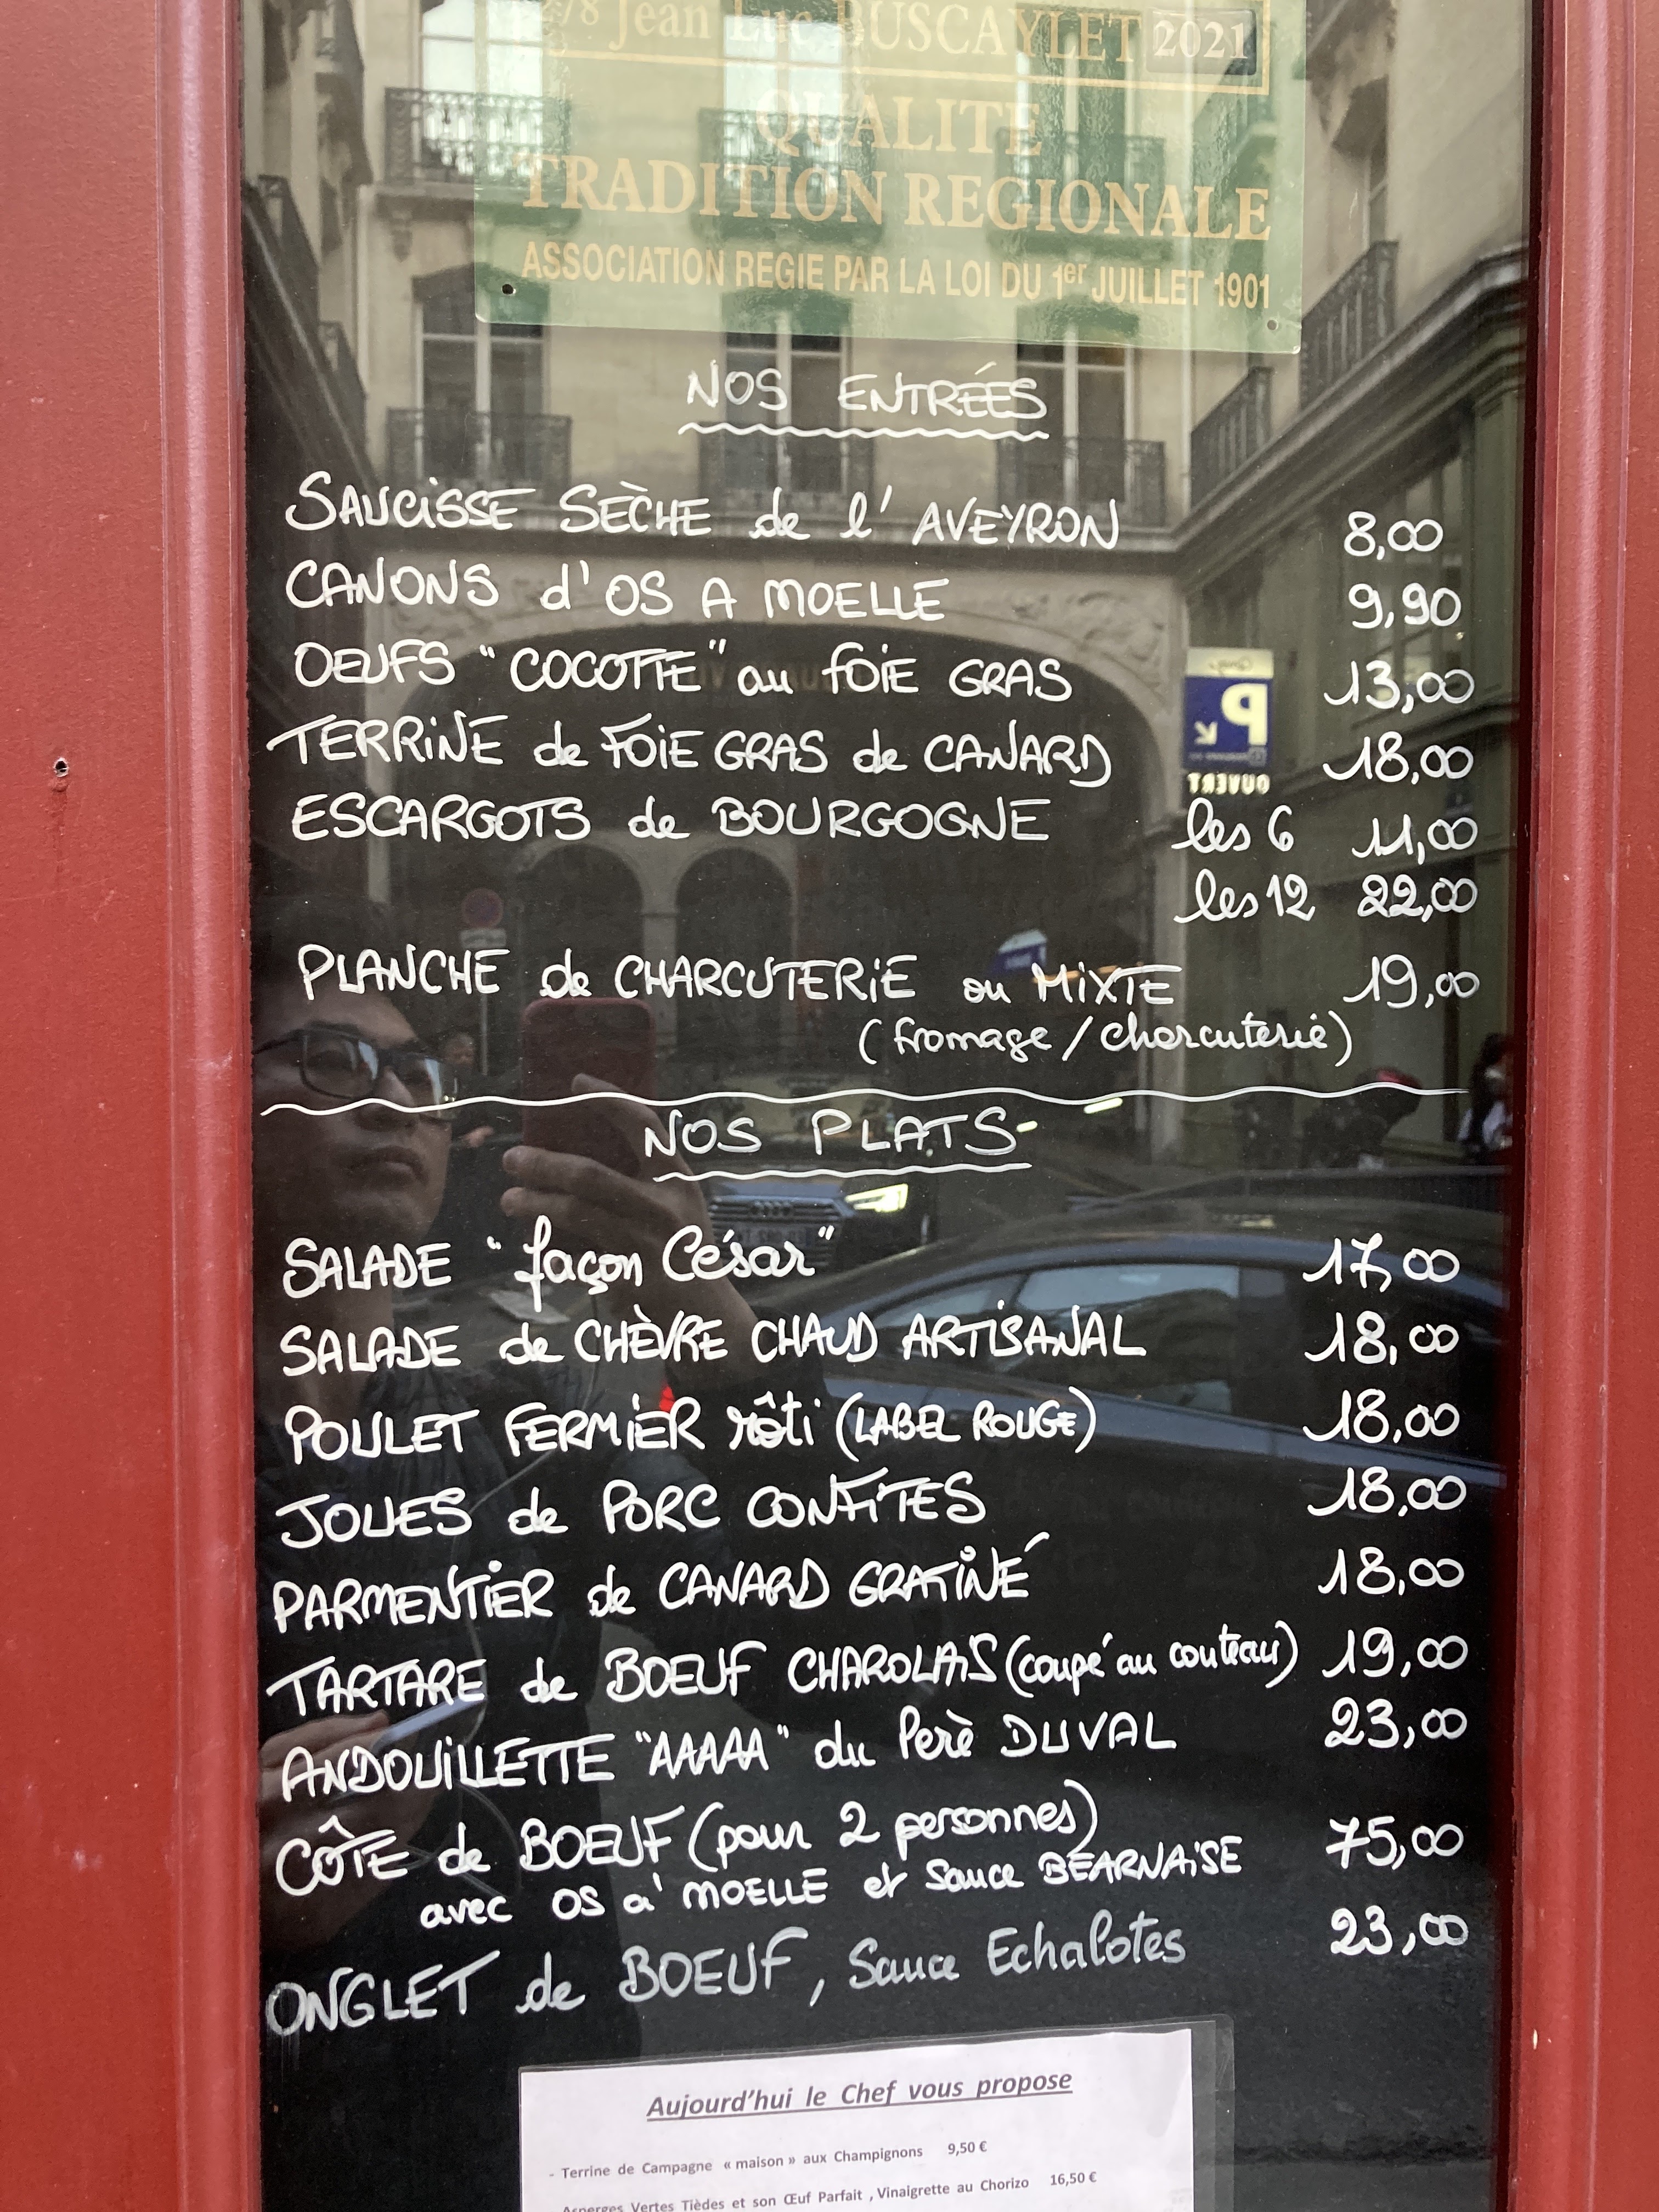 Jean Luc BUSCAYLET 2021
QUALITE
TRADITION REGIONALE
ASSOCIATION REGIE PAR LA LOI DU 1er JUILLET 1901
NOS ENTRÉES
SAUCISSE SÈCHE de l'AVEYRON 8,00
CANONS d'OS A MOELLE 9,90
OEUFS "COCOTTE" au FOIE GRAS 13,00
TERRINE de FOIE GRAS de CANARD 18,00
ESCARGOTS de BOURGOGNE les 6 11,00
les 12 22,00
PLANCHE de CHARCUTERIE ou MIXTE 19,00
(fromage / charcuterie)
NOS PLATS
SALADE "façon César" 17,00
SALADE de CHÈVRE CHAUD ARTISANAL 18,00
POULET FERMIER rôti (LABEL ROUGE) 18,00
JOUES de PORC CONFITES 18,00
PARMENTIER de CANARD GRATINÉ 18,00
TARTARE de BOEUF CHAROLAIS (coupé au couteau) 19,00
ANDOUILLETTE "AAAAA" du Perè DUVAL 23,00
CÔTE de BOEUF (pour 2 personnes) 75,00
avec OS à MOELLE et Sauce BÉARNAISE
ONGLET de BOEUF, Sauce Echalotes 23,00
Aujourd'hui le Chef vous propose
- Terrine de Campagne « maison » aux Champignons 9,50 €
Asperges Vertes Tièdes et son Œuf Parfait , Vinaigrette au Chorizo 16,50 €
P
OUVERT